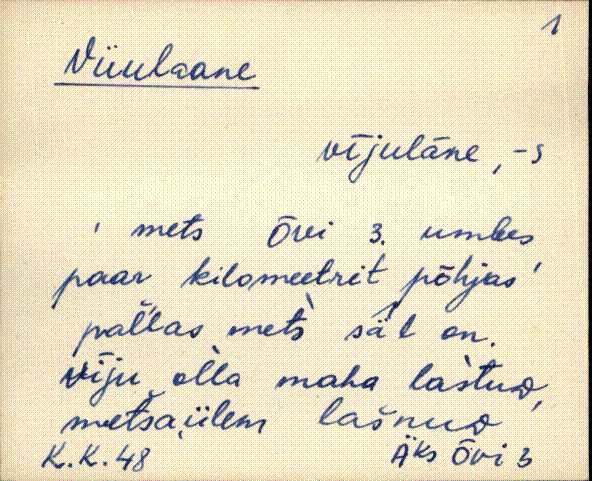 1
Viiulaane
vījulāne, -s
mets Õvi 3. umbes
paar kilomeetrit põhjas
pal̀l̀as mets säl on.
Vīju olla maha lastud,
metsaülem lasnud
K.K. 48 Äks Õvi 3